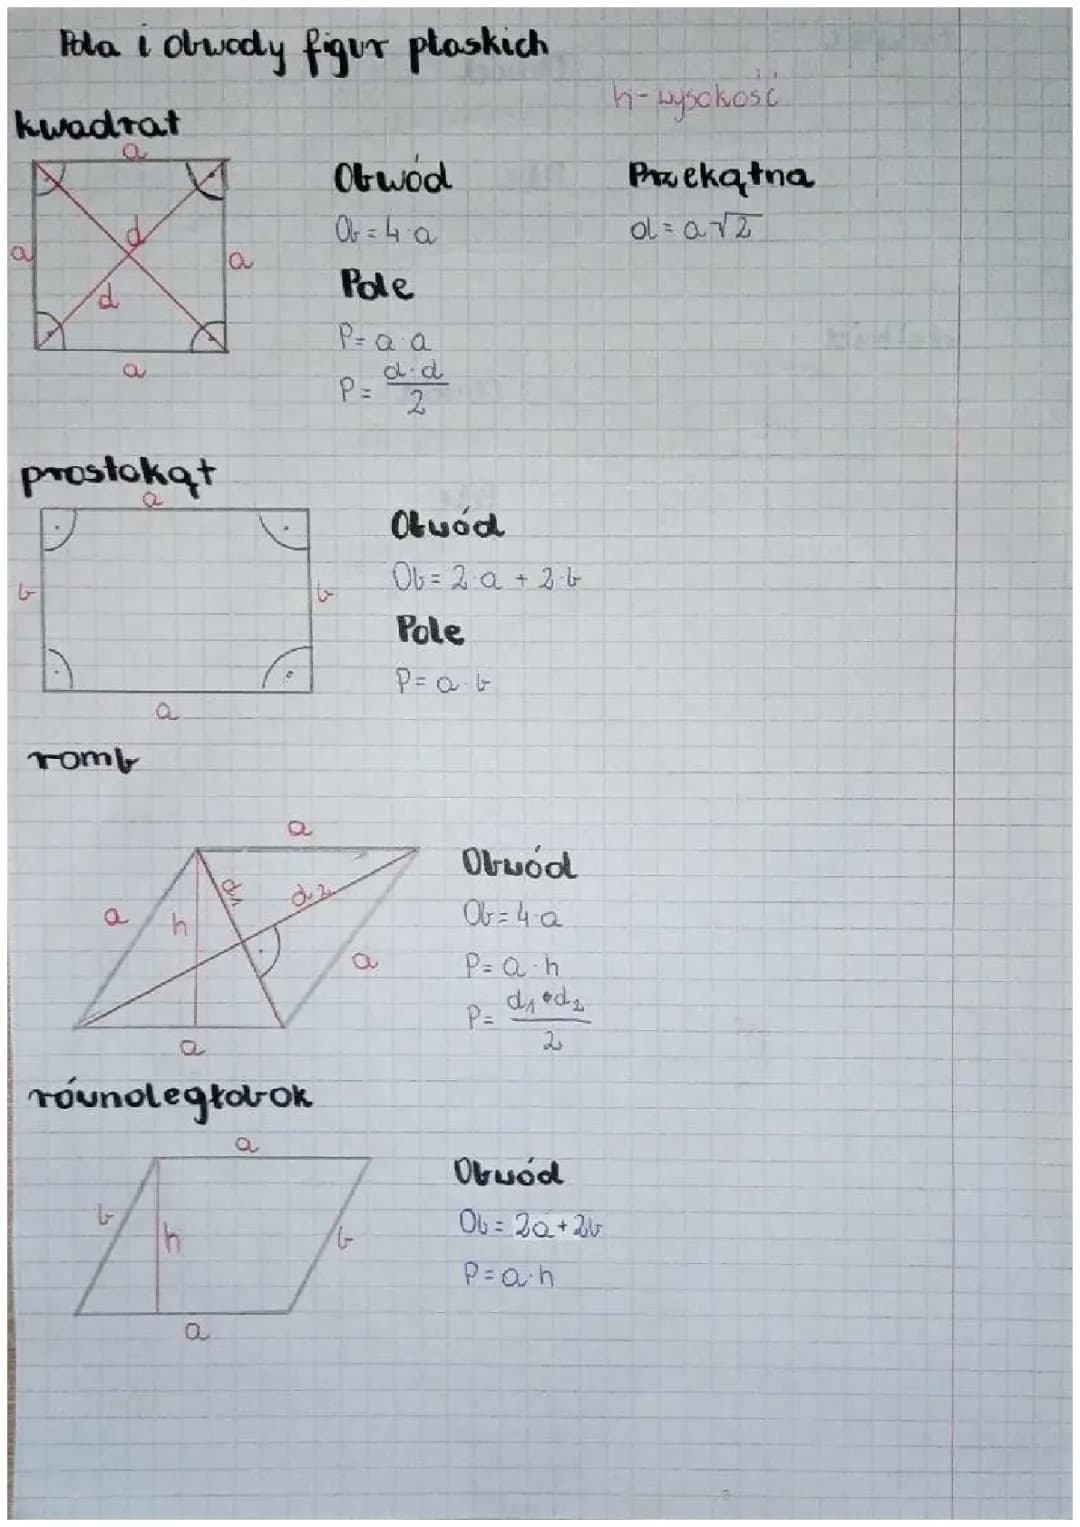 Pola i obwody figur płaskich
h - wysokość
kwadrat
a
a
d
a
d
a
Obwód
Ob = 4·a
Pole
P = a·a
P = d·d / 2
Przekątna
d = a√2
prostokąt
a
b
b
a
Obwód
Ob = 2·a + 2·b
Pole
P = a·b
romb
a
a
h
d₁
d₂
a
a
Obwód
Ob = 4·a
P = a·h
P = d₁•d₂ / 2
równoległobok
a
b
h
b
a
Obwód
Ob = 2a + 2b
P = a·h